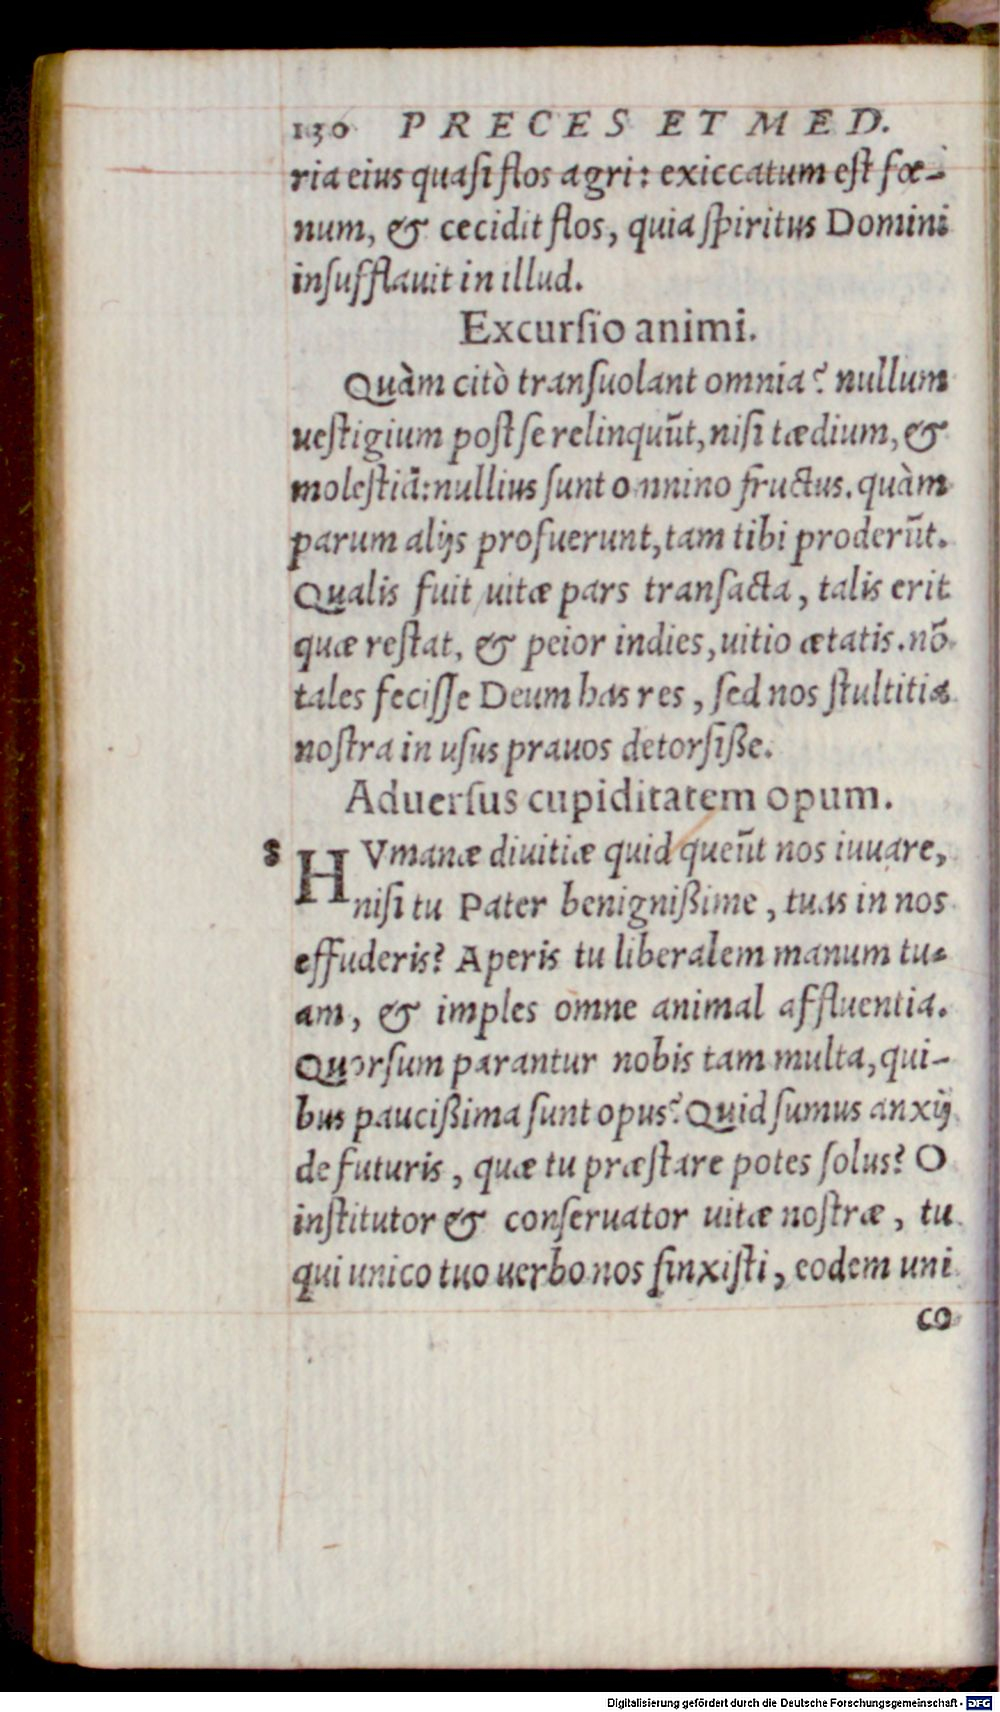 130 PRECES ET MED.
ria eius quaſi flos agri: exiccatum eſt fœ-
num, & cecidit flos, quia ſpiritus Domini
inſufflauit in illud.
Excurſio animi.
Quàm citò tranſuolant omnia? nullum
ueſtigium poſt ſe relinquūt, niſi tædium, &
moleſtiā: nullius ſunt omnino fructus. quàm
parum alijs profuerunt, tam tibi proderūt.
Qualis fuit uitæ pars tranſacta, talis erit
quæ reſtat, & peior indies, uitio ætatis. nō
tales feciſſe Deum has res, ſed nos ſtultitia
noſtra in uſus prauos detorſiße.
Aduerſus cupiditatem opum.
8 HVmanæ diuitiæ quid queūt nos iuuare,
niſi tu Pater benignißime, tuas in nos
effuderis? Aperis tu liberalem manum tu-
am, & imples omne animal affluentia.
Quorſum parantur nobis tam multa, qui-
bus paucißima ſunt opus? Quid ſumus anxij
de futuris, quæ tu præſtare potes ſolus? O
inſtitutor & conſeruator uitæ noſtræ, tu
qui unico tuo uerbo nos finxiſti, eodem uni
co
Digitalisierung gefördert durch die Deutsche Forschungsgemeinschaft - DFG